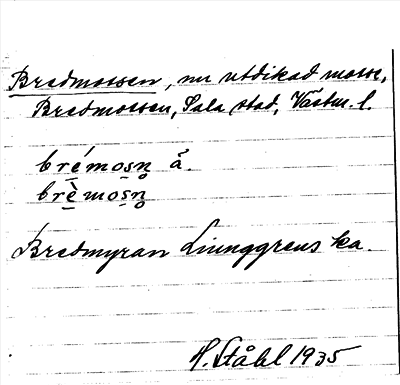 Bredmossen, nu utdikad mosse,
Bredmossen, Sala stad, Västm. l.
brémosn̥ å.
brèmosn̥
Bredmyran Liunggrens ka.
H. Ståhl 1935